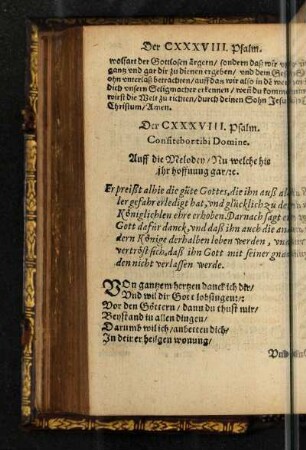 Der CXXXVIII. Psalm.
wolfart der Gottlosen ärgern/ sondern daß wir
gantz vnd gar dir zu dienen ergeben/ vnd dein
ohn vnterlaß betrachten/ auff dan wir also in
dich vnsern Seligmacher erkennen/ wen du kommen
wirst die Welt zu richten/ durch deinen Sohn Jesum
Christum/ Amen.
Der CXXXVIII. Psalm.
Confitebor tibi Domine.
Auff die Melodey/ Nu welche his
ihr hoffnung gar/ꝛc.
Er preißt alhie die güte Gottes, die ihn auß
ler gefahr erledigt hat, vnd glücklich zu
Königlichlen ehre erhoben. Darnach sagt er
Gott dafür danck, vnd daß ihn auch die
dern Könige derhalben loben werden,
vertröst sich, daß ihn Gott mit seiner gnaden
den nicht verlassen werde.
VOn gantzem hertzen danck ich dir/
Vnd wil dir Gott lobsingen/:
Vor den Göttern/ dann du thust mir/
Beystand in allen dingen/
Darumb wil ich/ anbetten dich/
In deiner heilgen wonung/
Vnd